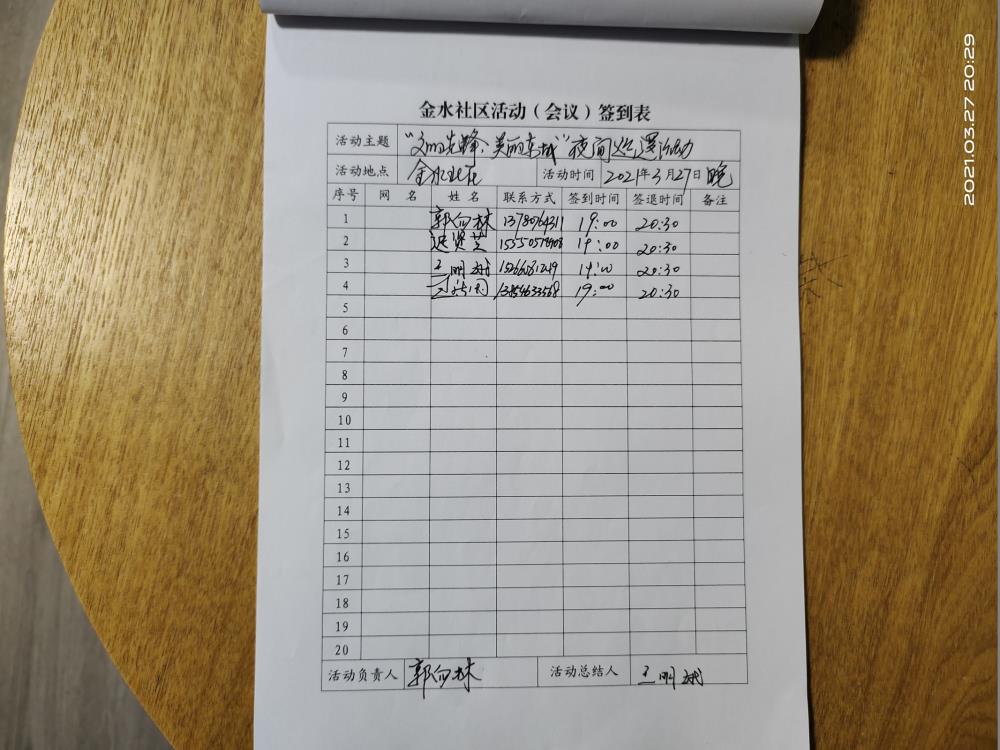 金水社区活动（会议）签到表
活动主题 "文明先锋、美丽东城"夜间巡逻活动
活动地点 金水社区 活动时间 2021年3月27日晚
序号 网 名 姓 名 联系方式 签到时间 签退时间 备注
1 郭向林 19:00 20:30
2 贤芝 19:00 20:30
3 王明 19:00 20:30
4 19:00 20:30
5
6
7
8
9
10
11
12
13
14
15
16
17
18
19
20
活动负责人 郭向林 活动总结人 王明
2021.03.27 20:29